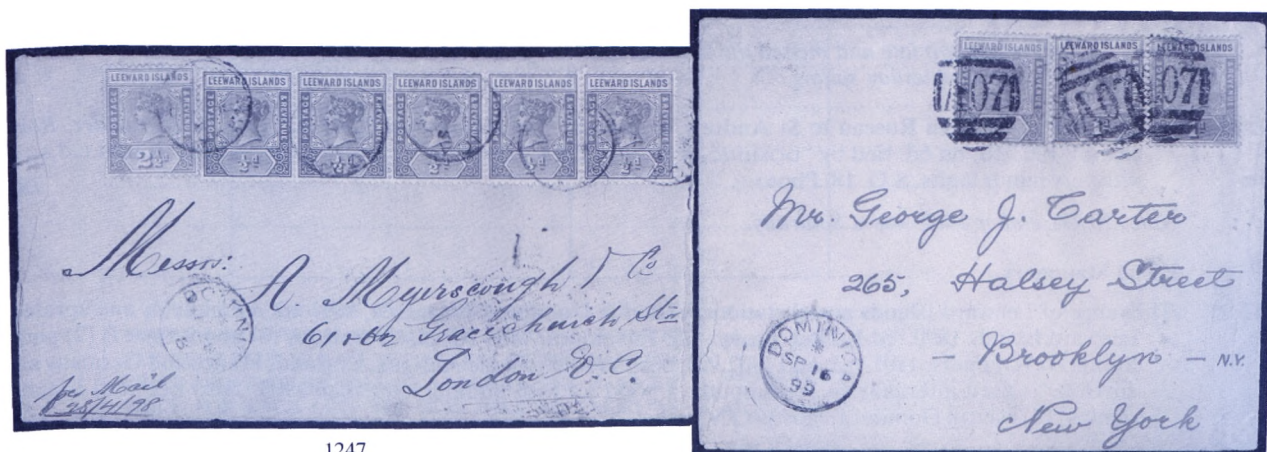 LEEWARD ISLANDS LEEWARD ISLANDS LEEWARD ISLANDS LEEWARD ISLANDS LEEWARD ISLANDS LEEWARD ISLANDS
POSTAGE REVENUE
2½d ½d ½d ½d ½d ½d
Messrs:
A. Myerscough & Co
61 & 62 Gracechurch Sts
London E.C.
DOMINI
per Mail
28/4/98
1247
LEEWARD ISLANDS LEEWARD ISLANDS LEEWARD ISLANDS
A07 A07 07
Mr. George J. Carter
265, Halsey Street
- Brooklyn - N.Y.
New York
DOMINICA
SP 16
99